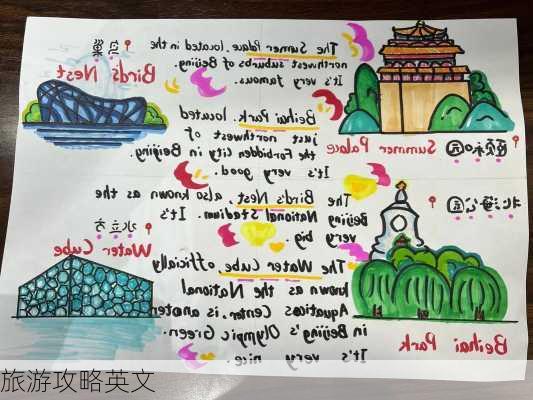 鸟巢
Bird's Nest
The Summer Palace, located in the
northwest suburbs of Beijing.
It's very famous.
颐和园
Summer Palace
Beihai Park, located
just northwest of
the Forbidden City in Beijing.
It's very good.
The Bird's Nest, also known as the
Beijing National Stadium. It's
very big.
北海公园
Beihai Park
水立方
Water Cube
The Water Cube, officially
known as the National
Aquatics Center, is
in Beijing's Olympic Green.
It's very nice.
旅游攻略英文